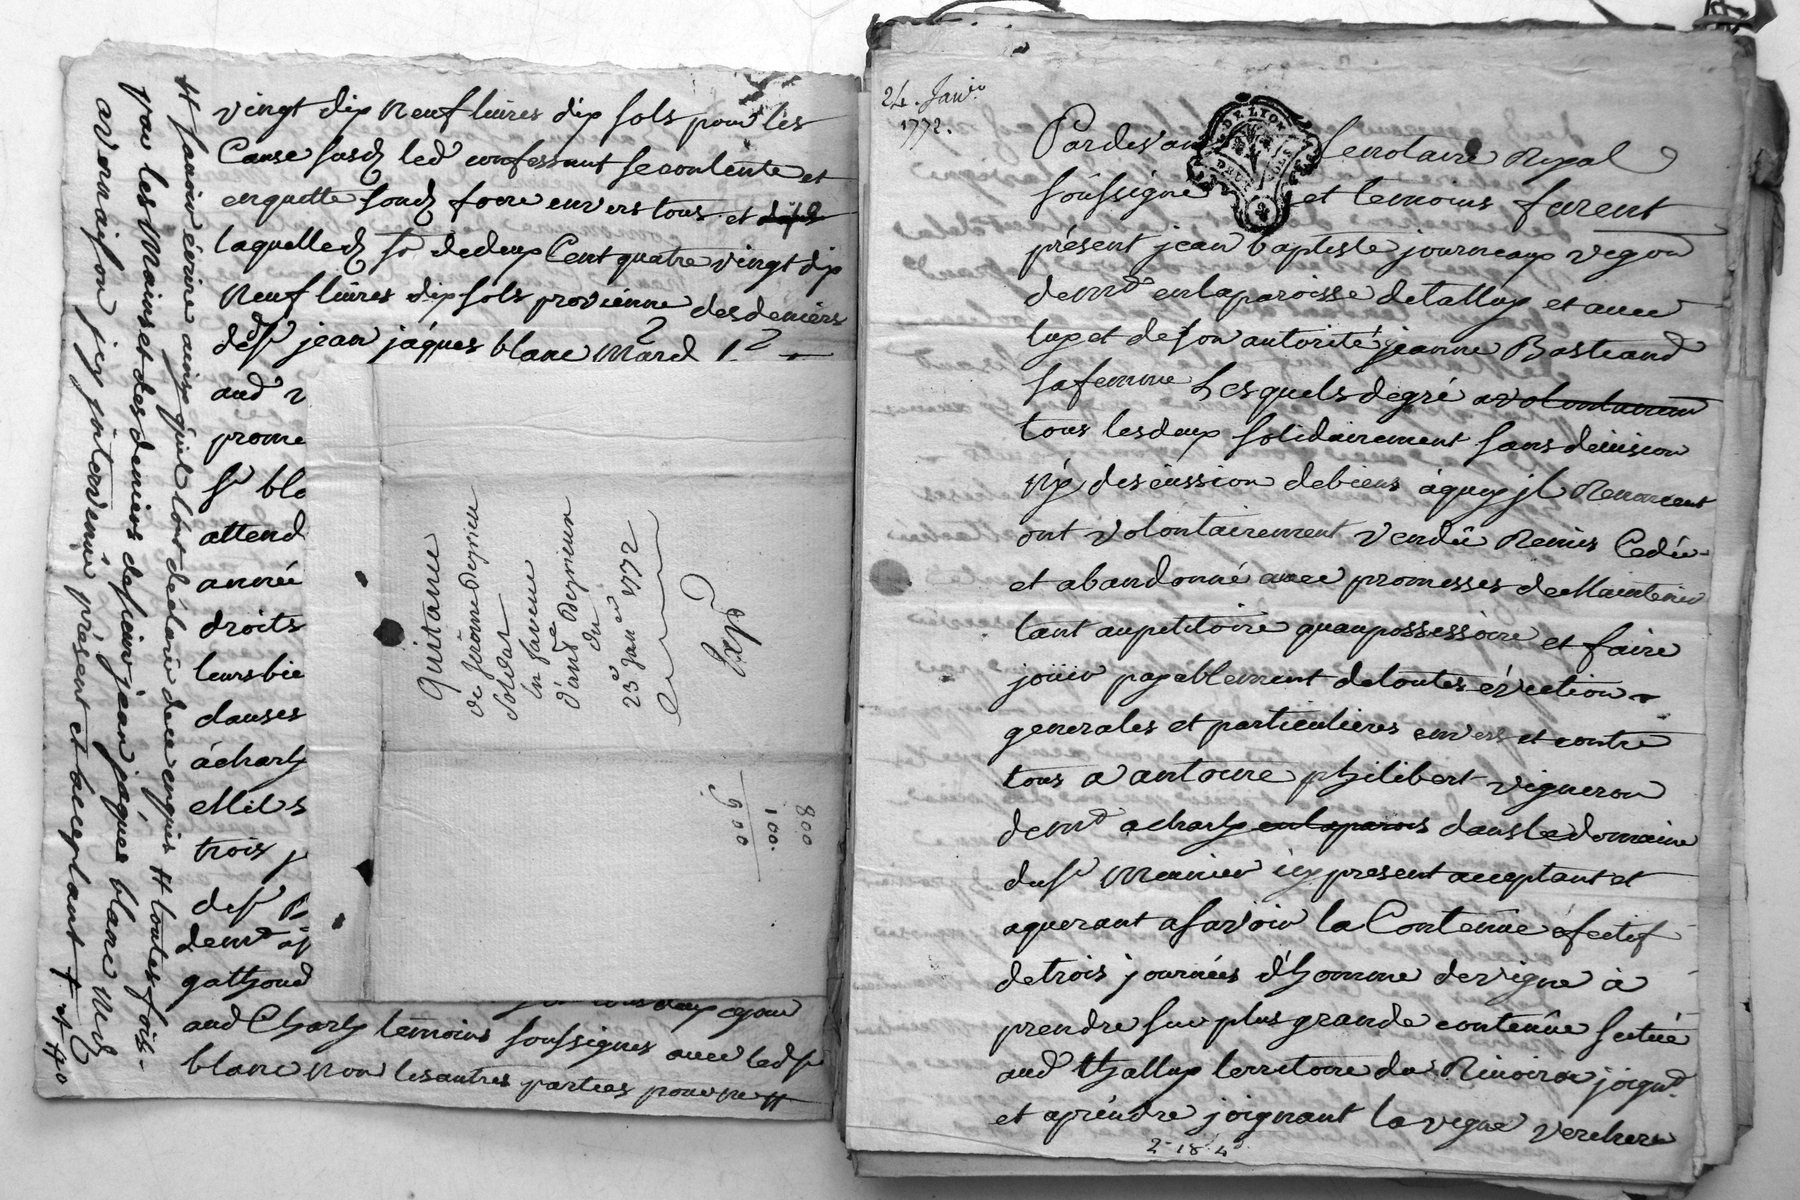 vingt dix neuf livres dix sols pour les
Cause susd led confessant se contente et
en quitte foud foere envers tous et
laquelled so de deux Cent quatre vingt dix
neuf livres dix sols provienne des deniers
dud sr jean jâques blanc mard
aud
prome
sr bla
attend
année
droits
leurs bie
clauses
â charly
Mil s
trois
du sr
dem
aud Charly temoins soussignes avec led sr
blanc non les autres parties pour ne #
# savoir écrire ainsy quil lont déclaré de ce enquis # toutes fois
par les mains et des deniers de sieur jean jaques blanc md
a vernaison jcy jntervenü présent et acceptant
Quitance
de Jerôme Deyrieu
Soldat
en faveur
d'andre Deyrieux
du
23e Janer 1772
Expd
800
100.
900
24. Janver
1772.
DE LYON
Pardevant Le notaire Royal
soûssigné et temoins furent
présent jean baptiste journoux vigon
demt en la paroisse de tallux et avec
luy et de son autorité jeanne Bastrand
sa femme Lesquels de gré a volontairem
tous les deux solidairement sans division
ny discüssion de biens â quoy jl Renoncent
ont volontairement vendû Remis Cedé
et abandonné avec promesses de Maintenir
tant au petitoire qu'au possessoire et faire
joüir paysiblement de toutes éviction
generales et particulieres envers et contre
tous a antoine philibert vigneron
demt a charly en la parois dans le domaine
du sr Meunier icy present acceptant et
aquerant a savoir la Contenüe éfectif
de trois journées d'homme de vigne â
prendre sur plus grande contenüe scitüé
aud thallux territoire du Rivoiron joignt
et a prendre joignant la vigne verchere
2-18-4d